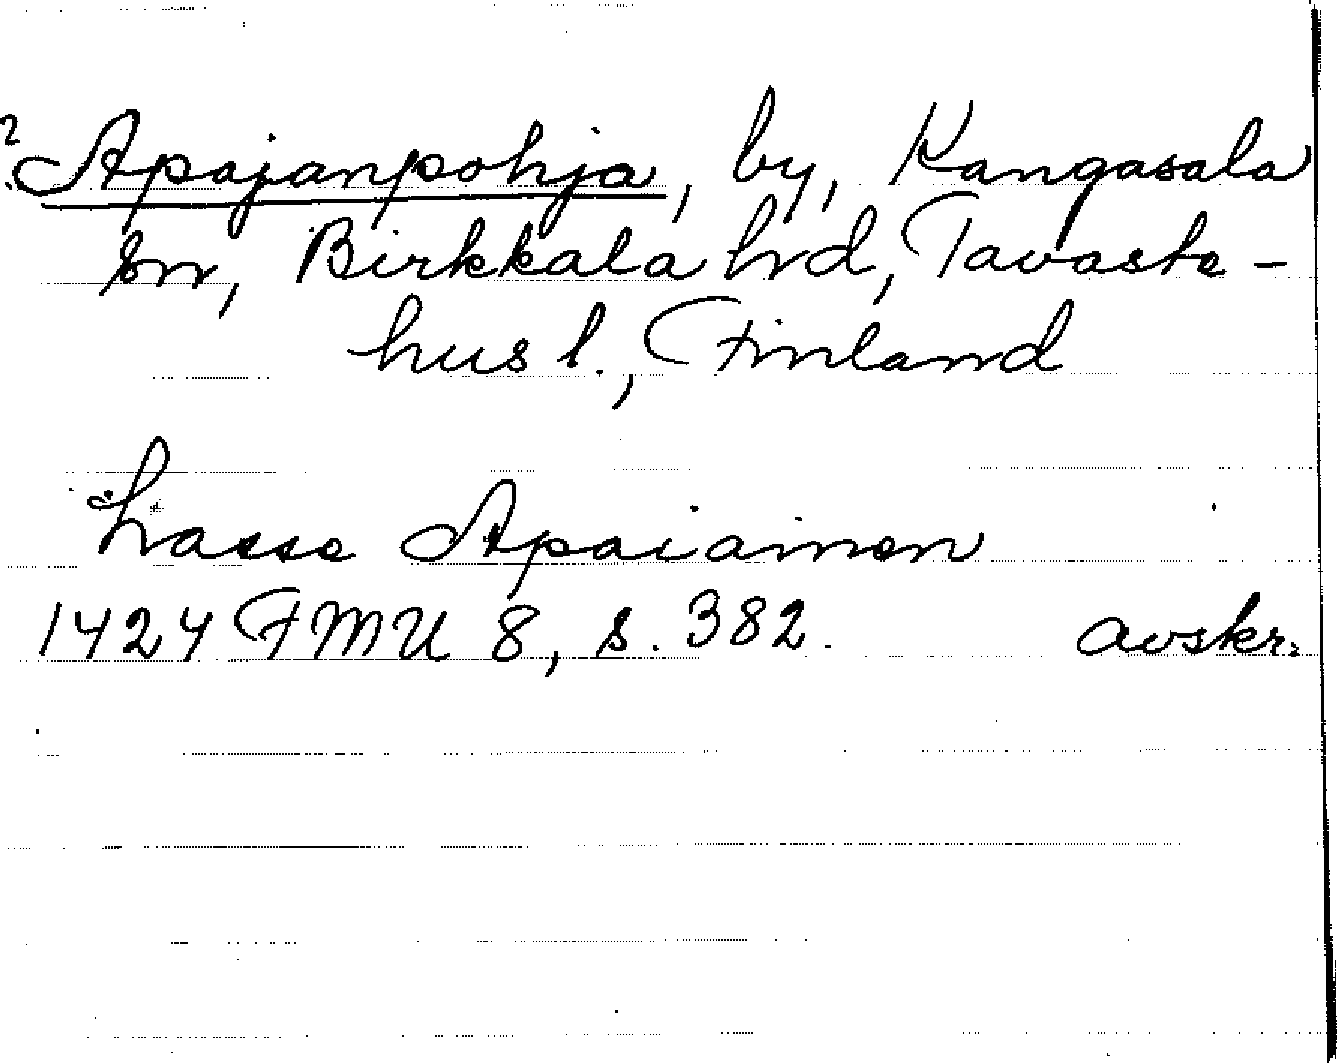 ? Apajanpohja, by, Kangasala
sn, Birkkala hrd, Tavaste-
hus l., Finland
Lasse Apaiainen
1424 FMU 8, s. 382. avskr.